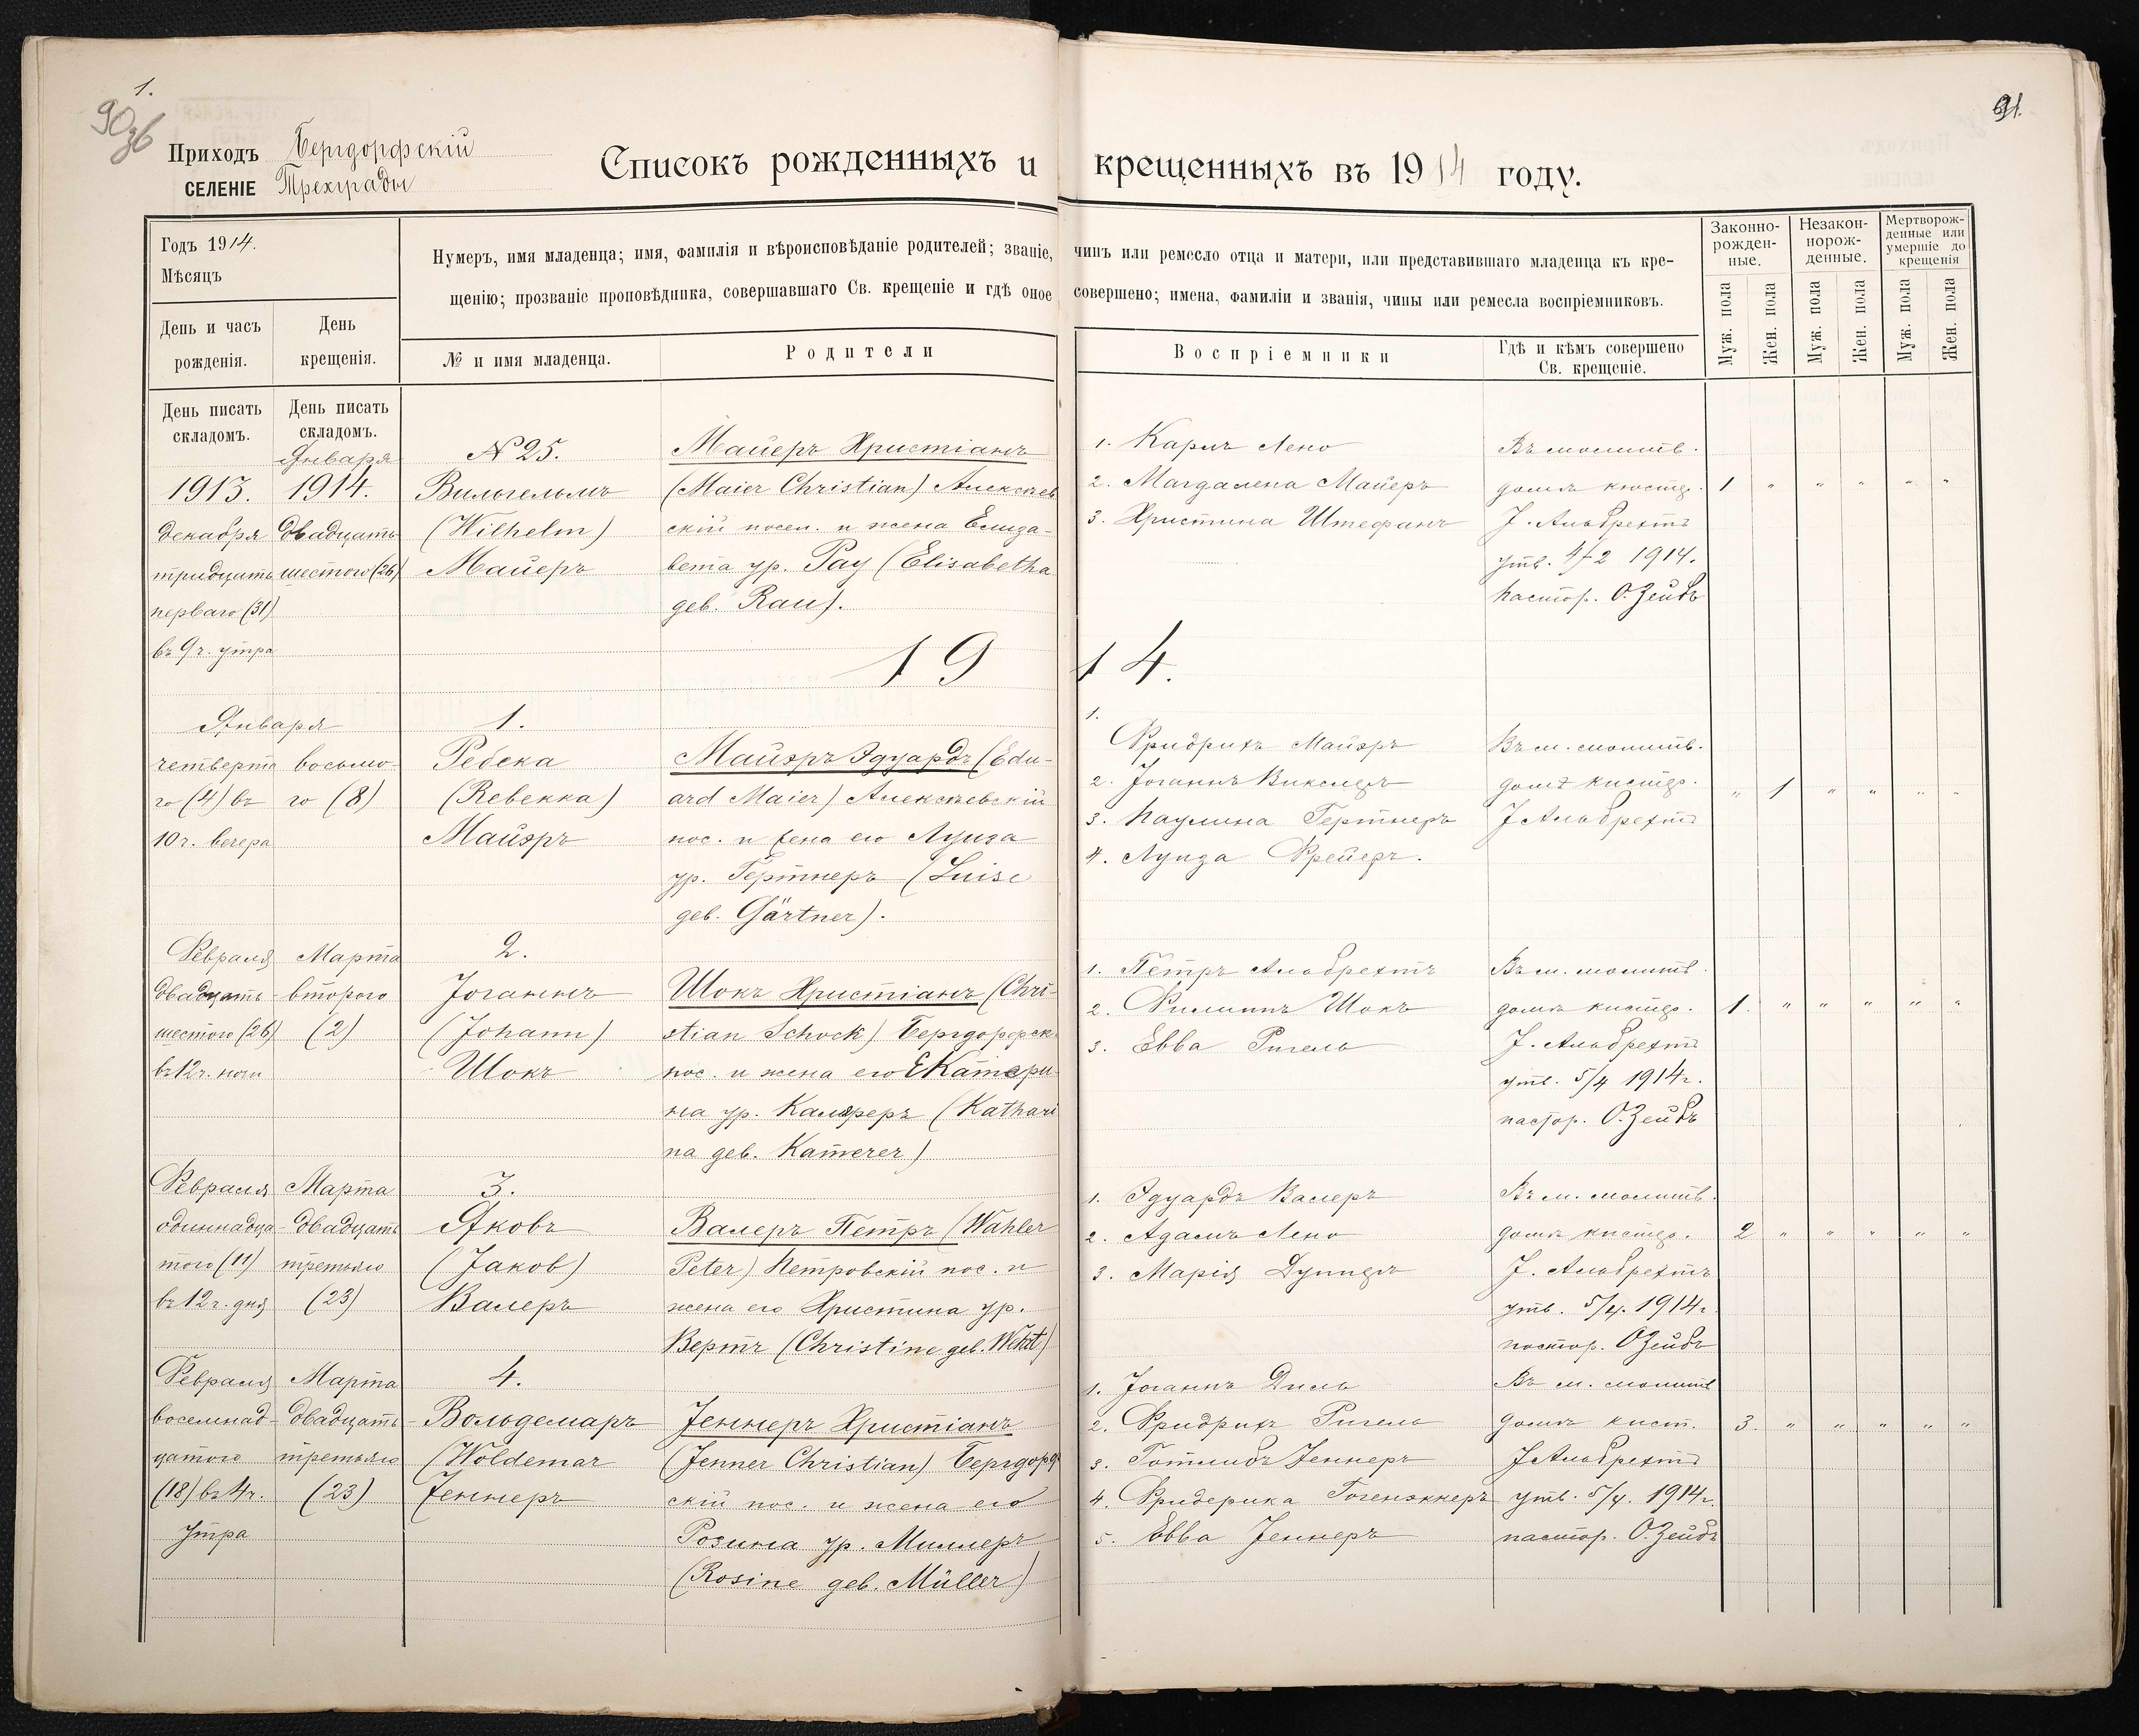 1.
90зв
91.
Приходъ Бергдорфскій
СЕЛЕНІЕ Трехграды
Списокъ рожденныхъ и крещенныхъ въ 1914 году.
Годъ 1914.
Мѣсяцъ
День и часъ рожденія.
День крещенія.
Нумеръ, имя младенца; имя, фамилія и вѣроисповѣданіе родителей; званіе, чинъ или ремесло отца и матери, или представившаго младенца къ кре-
щенію; прозваніе проповѣдника, совершавшаго Св. крещеніе и гдѣ оное совершено; имена, фамиліи и званія, чины или ремесла воспріемниковъ.
№ и имя младенца.
Родители
Воспріемники
Гдѣ и кѣмъ совершено
Св. крещеніе.
Законно-
рожден-
ные.
Незакон-
норож-
денные.
Мертворож-
денные или
умершіе до
крещенія
Муж. пола
Жен. пола
Муж. пола
Жен. пола
Муж. пола
Жен. пола
День писать
складомъ.
День писать
складомъ.
1913.
декабря
тридцать
перваго (31)
въ 9 ч. утра
Января
1914.
двадцать
шестого (26)
N 25.
Вильгельмъ
(Wilhelm)
Майеръ
Майеръ Христіанъ
(Maier Christian) Алексѣев
скій посел. и жена Елиза-
бета ур. Рау (Elisabetha
geb. Rau).
1. Карлъ Лено
2. Магдалена Майеръ
3. Христина Штефанъ
Въ молитв.
домѣ кюстер.
J. Альбрехтъ
утв. 4/2 1914.
пастор. О. Зейбъ
1 " " " " "
1914.
Января
четверта
го (4) въ
10 ч. вечера
восьмо-
го (8)
1.
Ребека
(Rebekka)
Майэръ
Майэръ Эдуардъ (Edu-
ard Maier) Алексѣевскій
пос. и жена его Луиза
ур. Гертнеръ (Luise
geb. Gärtner).
1.
Фридрихъ Майэръ
2. Јоганнъ Викслеръ
3. Паулина Гертнеръ
4. Луиза Фрейеръ.
Въ м. молитв.
домѣ кистер.
J Альбрехтъ
" 1 " " " "
Февраля
двадцать
шестого (26)
въ 12 ч. ночи
Марта
второго
(2)
2.
Јоганнъ
(Johann)
Шокъ
Шокъ Христіанъ (Chri-
stian Schock) Бергдорфск.
пос. и жена его Екатери-
на ур. Камереръ (Kathari
na geb. Kamerer)
1. Петръ Альбрехтъ
2. Филиппъ Шокъ
3. Евва Ригель
Въ м. молитв.
домѣ кистер.
J. Альбрехтъ
утв. 5/4 1914 г.
пастор. О. Зейбъ
1. " " " " "
Февраля
одиннадца-
того (11)
въ 12 ч. дня
Марта
двадцать
третьяго
(23)
3.
Яковъ
(Jakob)
Валеръ
Валеръ Петръ (Wahler
Peter) Петровскій пос. и
жена его Христина ур.
Вертъ (Christine geb.
1. Эдуардъ Валеръ
2. Адамъ Лено
3. Марія
Въ м. молитв.
домѣ кистер.
J. Альбрехтъ
утв. 5/4. 1914 г.
пастор. О Зейбъ
2 " " " " "
Февраля
восемнад-
цатого
(18) въ 4 ч.
утра
Марта
двадцать
третьяго
(23)
4.
Вольдемаръ
(Woldemar
Јеннеръ
Јеннеръ Христіанъ
(Jenner Christian) Бергдорф
скій пос. и жена его
Розина ур. Миллеръ
(Rosine geb. Müller)
1. Јоганнъ Диль
2. Фридрихъ Ригель
3. Готлибъ Јеннеръ
4. Фридерика Гогенэккеръ
5. Евва Јеннеръ
Въ м. молитв
домѣ кист.
J Альбрехтъ
утв. 5/4. 1914 г.
пастор. О. Зейбъ
3. " " " " "